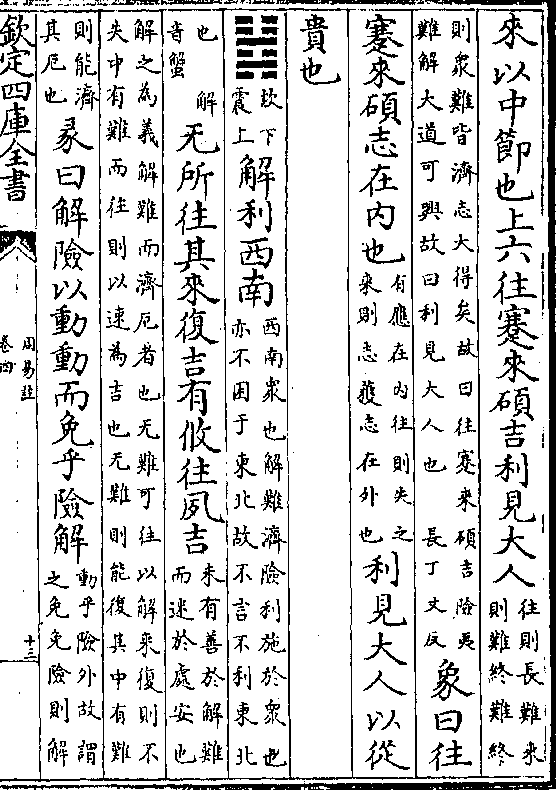 來以中節也上六往蹇來碩吉利見大人往則長難來
則難終難終
則衆難皆濟志大得矣故曰往蹇來碩吉險夷
難解大道可興故曰利見大人也 長丁丈反象曰往
蹇來碩志在內也有應在內往則失之
來則志獲志在外也利見大人以從
貴也
䷧坎下
震上解利西南西南衆也解難濟險利施於衆也
亦不困于東北故不言不利東北
也 解
音蟹无所往其來復吉有攸往夙吉未有善於解難
而迷於處安也
解之為義解難而濟厄者也无難可往以解來復則不
失中有難而往則以速為吉也无難則能復其中有難
則能濟
其厄也彖曰解險以動動而免乎險解動乎險外故謂
之免免險則解
欽定四庫全書
周易註
卷四
十三